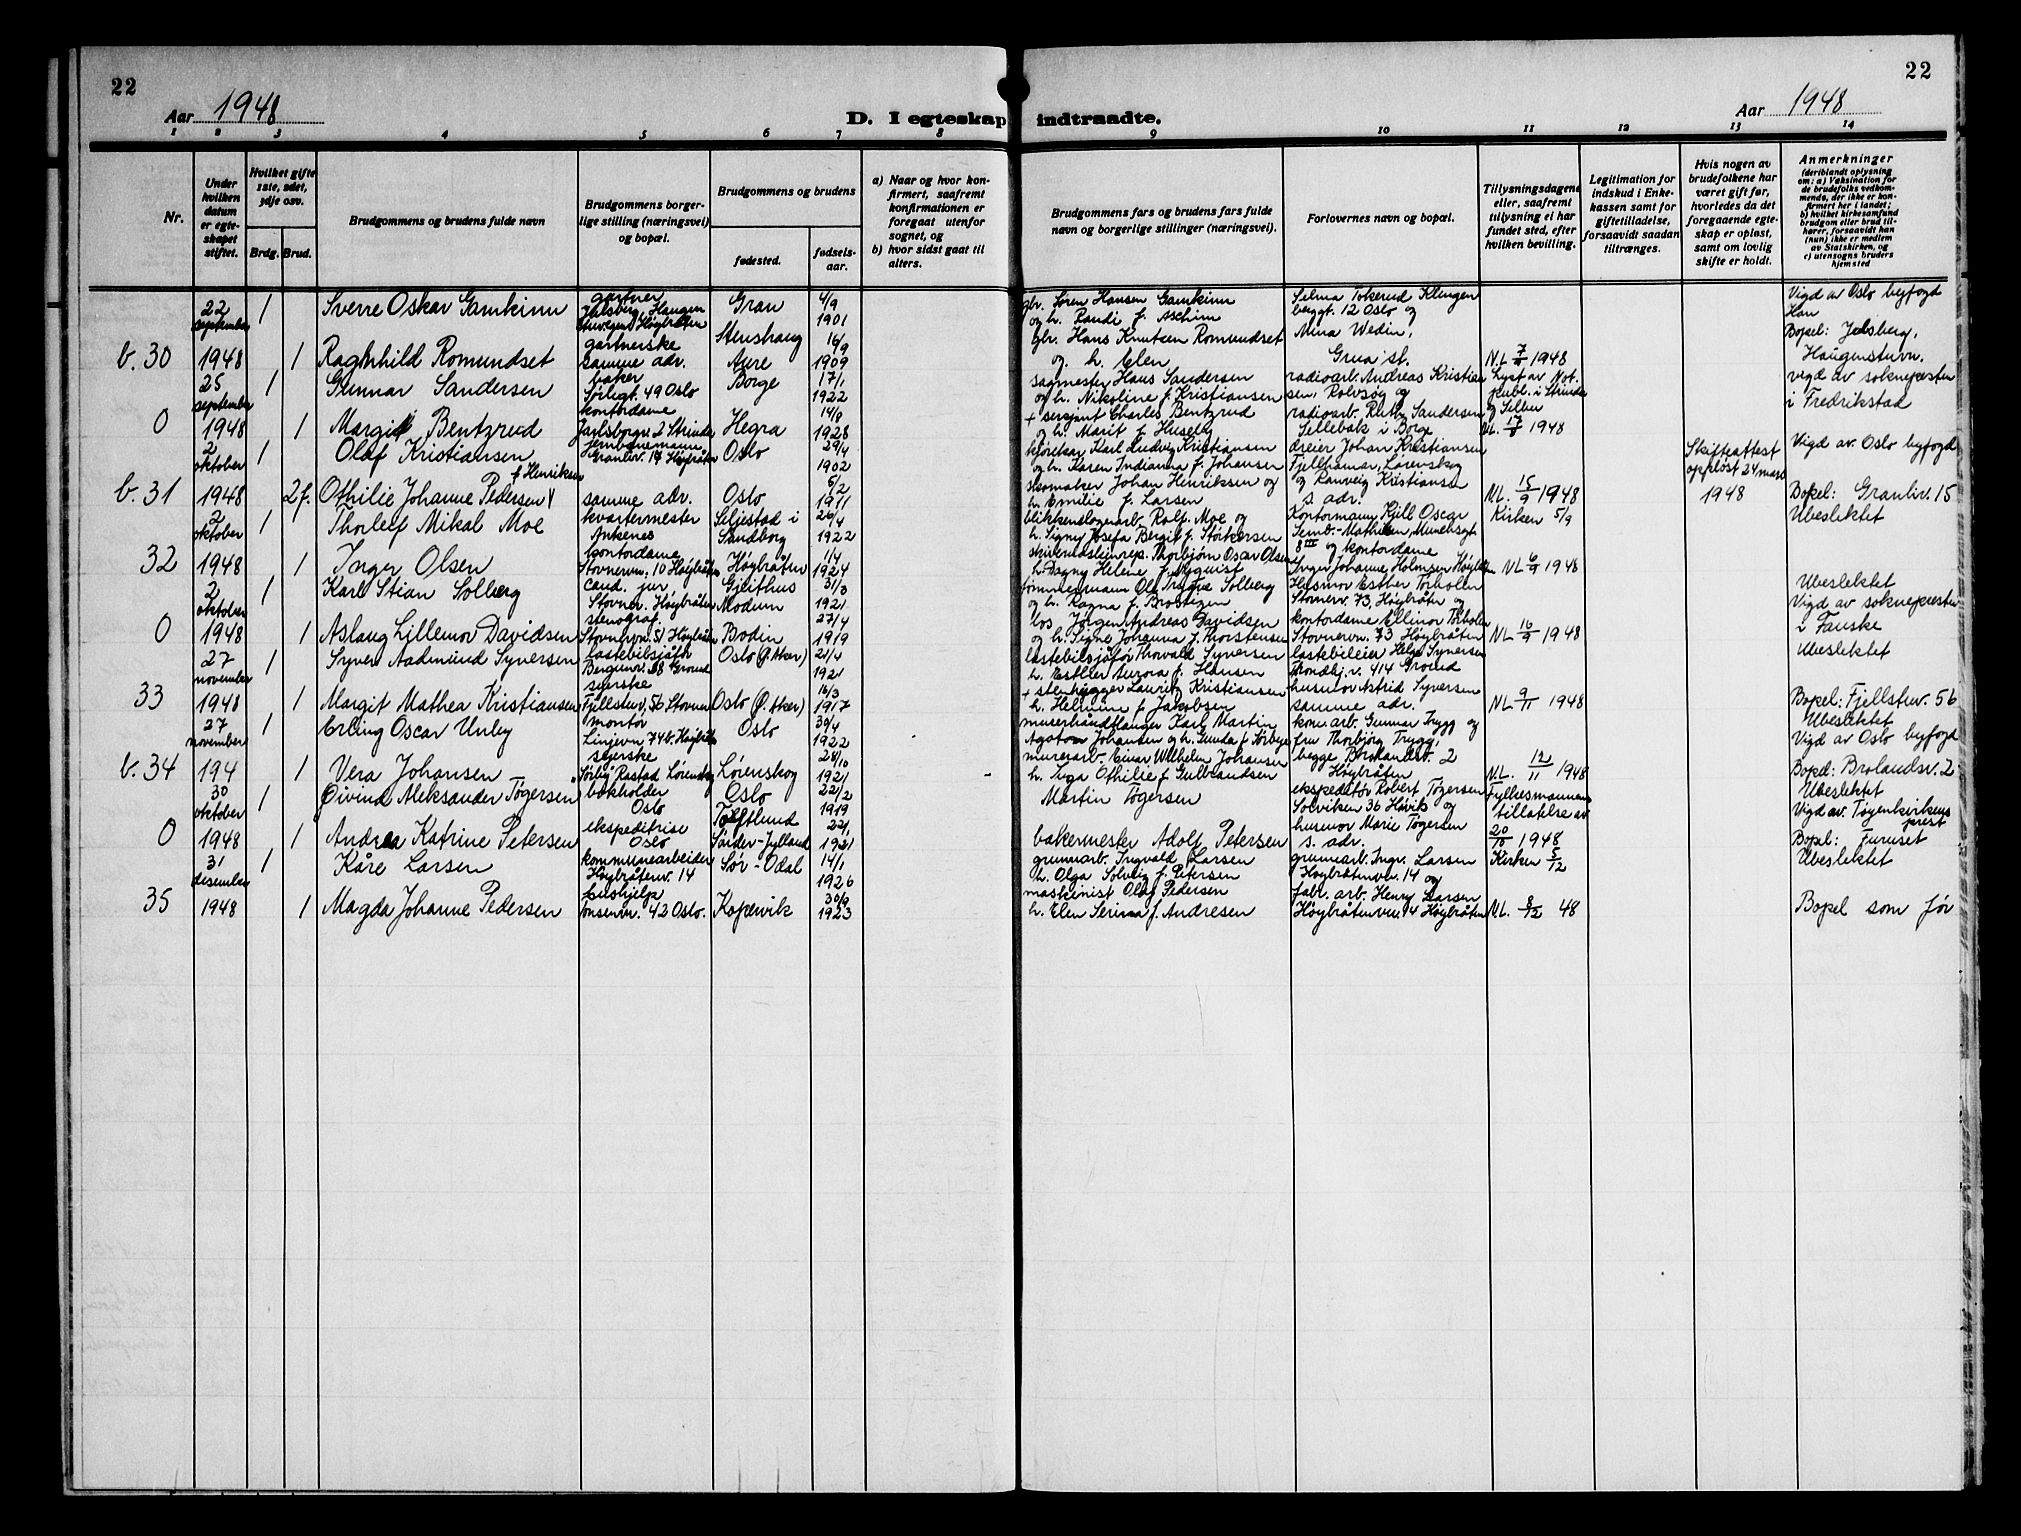 22
22
Aar 1948
D. I egteskap indtraadte.
Aar 1948
1 2 3 4 5 6 7 8 9 10 11 12 13 14
Nr.
Under hvilken datum er egteskapet stiftet.
Hvilket gifte 1ste, 2det, 3dje osv.
Brdg. Brud.
Brudgommens og brudens fulde navn
Brudgommens borgerlige stilling (næringsvei) og bopæl.
Brudgommens og brudens
fødested.
fødselsaar.
a) Naar og hvor konfirmert, saafremt konfirmationen er foregaat utenfor sognet, og
b) hvor sidst gaat til alters.
Brudgommens fars og brudens fars fulde navn og borgerlige stillinger (næringsvei).
Forlovernes navn og bopæl.
Tillysningsdagene eller, saafremt tillysning ei har fundet sted, efter hvilken bevilling.
Legitimation for indskud i Enkekassen samt for giftetilladelse, forsaavidt saadan tiltrænges.
Hvis nogen av brudefolkene har været gift før, hvorledes da det foregaaende egteskap er opløst, samt om lovlig skifte er holdt.
Anmerkninger
(deriblandt oplysning om: a) Vaksination for de brudefolks vedkommende, der ikke er konfirmert her i landet; b) hvilket kirkesamfund brudgom eller brud tilhører, forsaavidt han (hun) ikke er medlem av Statskirken, og c) utensogns bruders hjemsted
b. 30
22 september 1948
1
Sverre Oskar Gamkinn
gartner
Gran
4/9 1901
gbr. Søren Hansen Gamkinn
og h. Randi f. Aschim
Selma Tokerud Klingen
berggt. 12 Oslo og
Vigd av Oslo byfogd
1
Ragnhild Romundset
gartnerske
samme adr.
Stenshaug
Aure
16/9 1909
Gbr. Hans Knutsen Romundset
og h. Elen
Mina Wedin,
Grua st.
N.L. 7/9 1948
Bopel: Jelsberg,
Haugenstuvn.
0
25 september 1948
1
Gunnar Sandersen
baker
Sørligt. 49 Oslo
Borge
17/1 1922
sagmester Hans Sandersen
og h. Nikoline f. Kristiansen
radioarb. Andreas Kristiansen, Rolvsøy og
Lyst av Not.
publ. i Strinda
og Selbu
vigd av soknepresten
i Fredrikstad
1
Margit Bentzrud
kontordame
Jarlsborgv. 2 Strinda
Hegra
14/8 1928
+ sersjant Charles Bentzrud
og h. Marit f. Huseby
radioarb. Ruth Sandersen
Sellebakk i Borge
N.L. 17/9 1948
b. 31
2 oktober 1948
1
Olaf Kristiansen
jernbanemann
Granliv. 17 Høybråten
Oslo
29/4 1902
kjørekar Karl Ludvig Kristiansen
og h. Karen Indianna f. Johansen
dreier Johan Kristiansen
Fjellhamar, Lørenskog
Skifteattest
oppløst 24 mars
1948
Vigd av Oslo byfogd
2f.
Othilie Johanne Pedersen f. Henriksen
samme adr.
Oslo
6/2 1911
skomaker Johan Henriksen og
h. Emilie f. Larsen
og Ranveig Kristiansen
s. adr.
N.L. 15/9 1948
Bopel: Granliv. 15
Ubeslektet
32
2 oktober 1948
1
Thorleif Mikal Moe
kvartermester
Ankenes
Seljestad i
Sandborg
26/4 1922
blikkenslagerarb. Rolf Moe og
h. Signy Josefa Bergit f. Størkersen
Kontormann Kjell Oscar
Semb-Mathisen, Munchsgt
8 III og kontordame
Kirken 5/9
1
Inger Olsen
kontordame
Stovnervn. 10 Høybråten
Høybråten
1/4 1924
skrivemaskinrep. Thorbjørn Oscar Olsen
h. Dagny Helene f. Nyquist
Inger Johanne Holmsen Høybråten
NL 6/9 1948
Ubeslektet
0
2 oktober 1948
1
Karl Stian Solberg
cand. jur
Stovner. Høybråten
Geithus
Modum
31/3 1921
tømmermann Ole Trygve Solberg
og h. Ragna f. Brostigen
Husmor Esther Torholm
Stovnerv. 73, Høybråten og
Vigd av soknepresten
i Fauske
1
Aslaug Lillemor Davidsen
stenograf.
Stovnervn. 51 Høybråten
Bodin
27/4 1919
los Jørgen Andreas Davidsen
og h. Signe Johanna f. Thorstensen
kontordame Ellinor Torholm
Stovnervn. 73 Høybråten
NL 16/9 1948
Ubeslektet
33
27 november 1948
1
Syver Aadmund Syversen
lastebilsjåfør
Bergenv. 28 Grorud
Oslo (Ø. Aker)
21/4 1921
lastebilsjåfør Thorvald Syversen
h. Esther Aurora f. Hansen
lastebileier Helge Syversen
Trondhj.v. 414 Grorud
1
Margit Mathea Kristiansen
syerske
Fjellstuv. 56 Stovner
Oslo (Ø. Aker)
16/3 1917
+ stenhugger Lauritz Kristiansen
h. Helmine f. Jakobsen
husmor Astrid Syversen
samme adr.
NL 9/11 1948
Bopel: Fjellstuv. 56
Ubeslektet
b. 34
27 november 194
1
Erling Oscar Unby
montør
Linjevn 74b. Høybråten
Oslo
30/4 1922
murerhåndtlanger Karl Martin
Agaton Johansen og h. Gunda f. Sørbye
kom. arb. Gunnar Trygg og
fru Thorbjørg Trygg,
Vigd av Oslo byfogd
1
Vera Johansen
syerske
"Sørby" Rastad Lørenskog
Lørenskog
28/10 1921
murerarb. Einar Wilhelm Johansen
h. Inga Othilie f. Gulbrandsen
begge Brolandsv. 2
Høybråten
N.L. 12/11 1948
Bopel: Brolandsv. 2
Ubeslektet
0
30 oktober 1948
1
Øivind Aleksander Tøgersen
bokholder
Oslo
Oslo
22/2 1919
Martin Tøgersen
ekspeditør Robert Tøgersen
Solviken 36 Høvik og
Fylkesmannens
tillatelse av
Vigd av. Tøyenkirkens
prest
1
Andrea Katrine Petersen
ekspeditrise
Oslo
Toftlund
Sønder-Jylland
22/1 1921
bakermester Adolf Petersen
husmor Marie Tøgersen
s. adr.
20/10 1948
Bopel: Furuset
Ubeslektet
35
31 desember 1948
1
Kåre Larsen
kommunearbeider
Høybråtenv. 14
Sør-Odal
14/1 1926
grunnarb. Ingvald Larsen
h. Olga Solveig f. Petersen
grunnarb. Ingv. Larsen
Høybråtenvn. 14 og
Kirken 5/12
1
Magda Johanne Pedersen
hushjelp
Jonsenvn. 42 Oslo.
Kopervik
30/9 1923
maskinist Olaf Pedersen
h. Elen Serina f. Andresen
fabr. arb. Henry Larsen
Høybråtenvn. 14 Høybråten
N.L. 8/12 48
Bopel som før